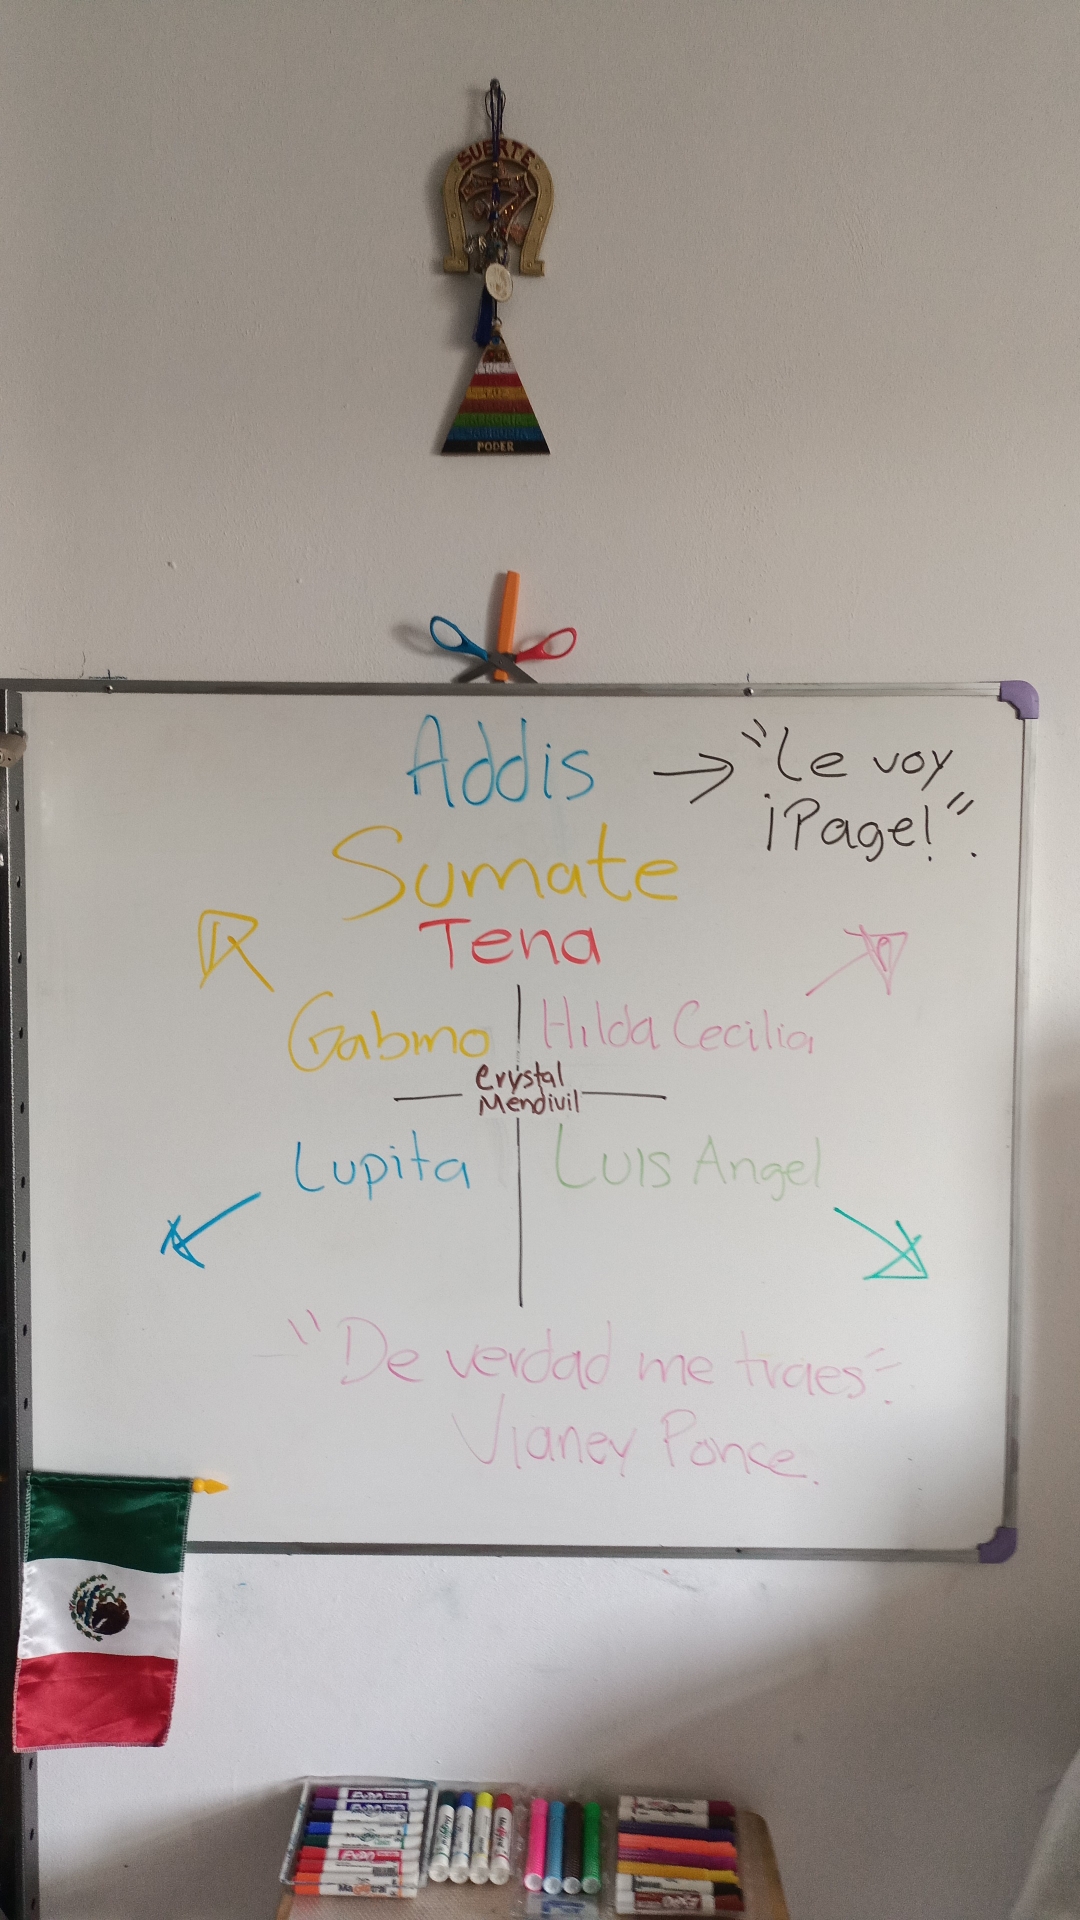 SUERTE
PODER
Addis → "Le voy
¡Page!".
Sumate
Tena
Gabmo
Hilda Cecilia
Crystal
Mendivil
Lupita
Luis Angel
"De verdad me traes".
Vianey Ponce.
EXPO